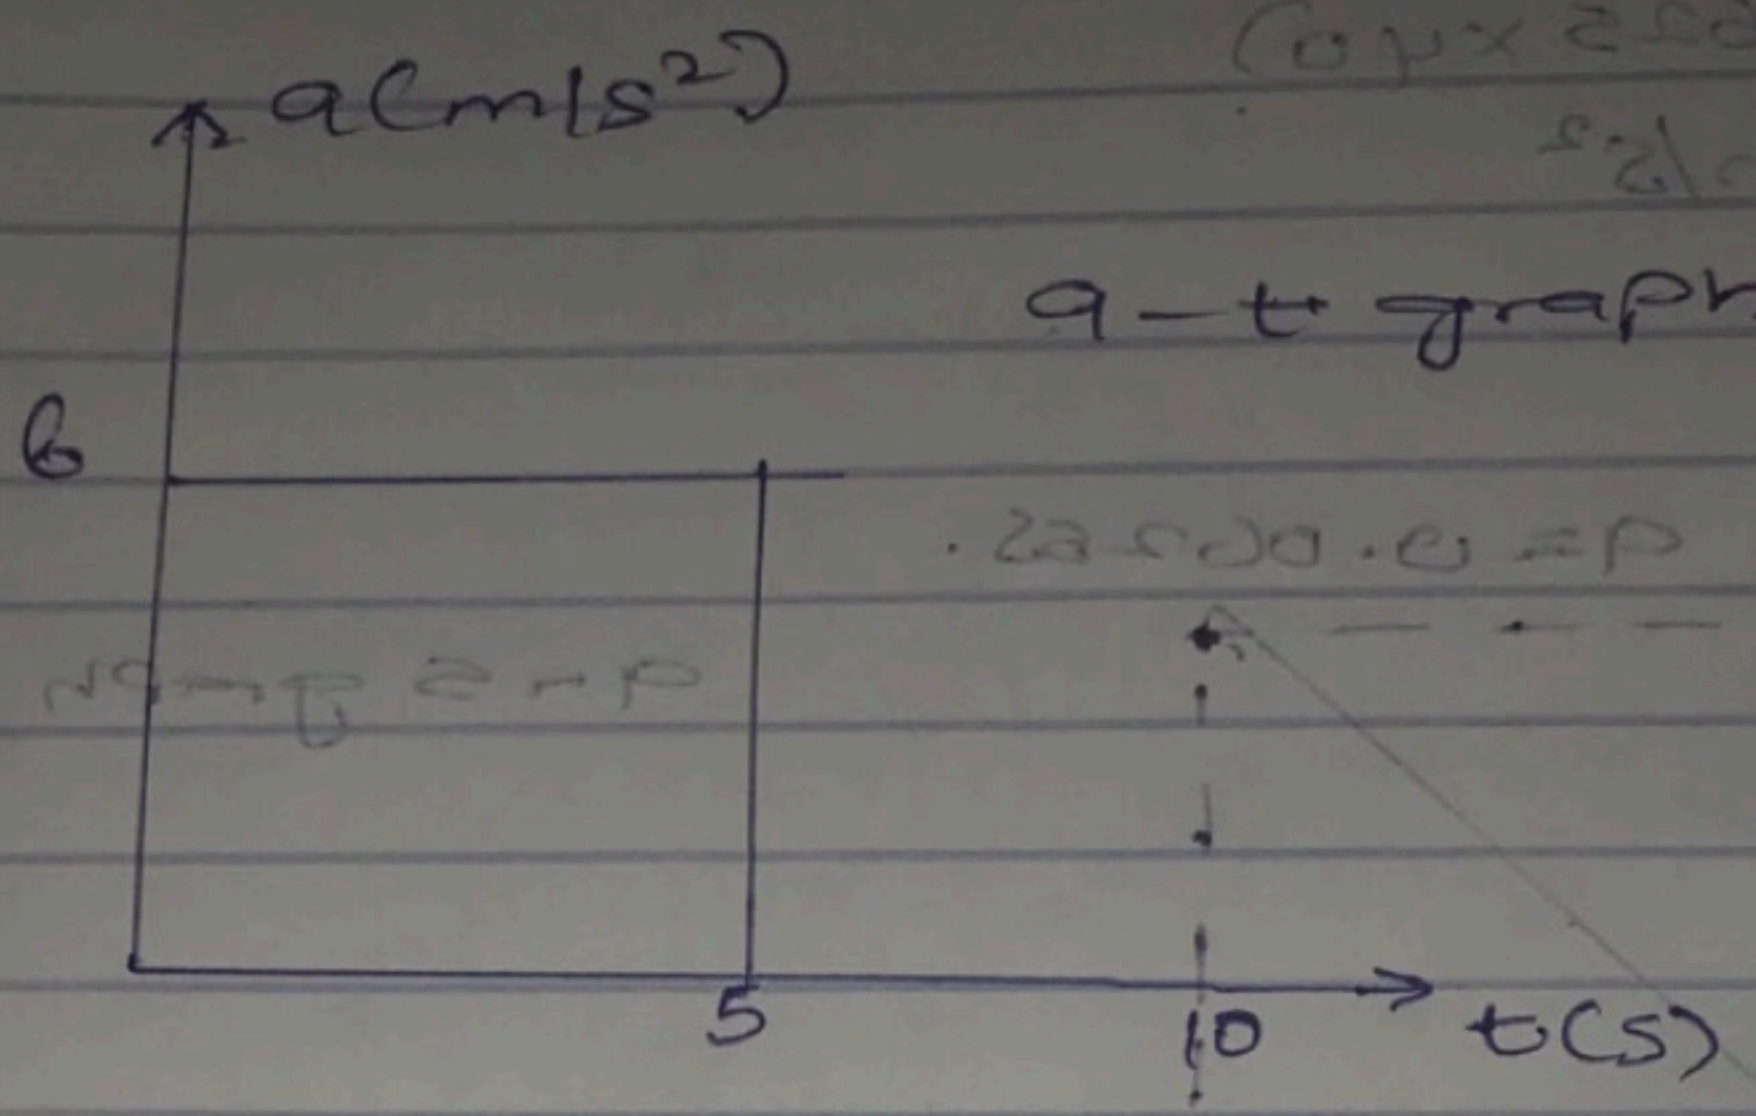 a(m/s²)
a-t graph
6
5
10
t(s)